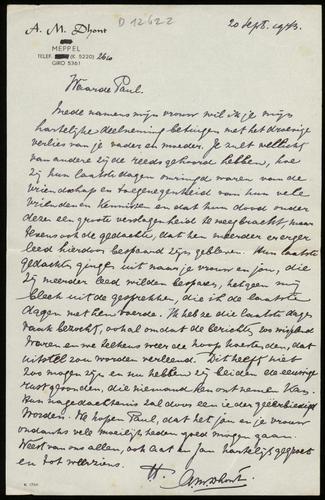 A. M. Dhont
D 12622
MEPPEL
TELEF. (K 5220) 2610
GIRO 5361
20 Sept. 1943.
Waarde Paul.
Mede namens mijn vrouw wil ik je mijn
hartelijke deelneming betuigen met het droevige
verlies van je vader en moeder. Je zult wellicht
van andere zijde reeds gehoord hebben, hoe
zij hun laatste dagen omringd waren van de
vriendschap en toegenegenheid van hun vele
vrienden en kennissen en dat hun dood onder
dezen een groote verslagenheid te weeg bracht, maar
tevens ook de gedachte, dat hen meerder en erger
leed hierdoor bespaard zijn gebleven. Hun laatste
gedachten gingen uit naar je vrouw en jou, die
zij meerder leed wilden besparen, hetgeen mij
bleek uit de gesprekken, die ik de laatste
dagen met hen voerde. Ik heb ze die laatste dagen
vaak bezocht, vooral omdat de berichten zoo
waren en we telkens weer de hoop koesterden, dat
uitstel zou worden verleend. Dit heeft niet
zoo mogen zijn en nu hebben zij beiden de eeuwige
rust gevonden, die niemand hen ontnemen kan.
Hun nagedachtenis zal door een ieder geëerbiedigd
worden. We hopen Paul, dat het jou en je vrouw
ondanks vele moeilijkheden goed mogen gaan.
Weest van ons allen, ook aan en Jan hartelijk gegroet
en tot weerziens.
A.M. Dhont.